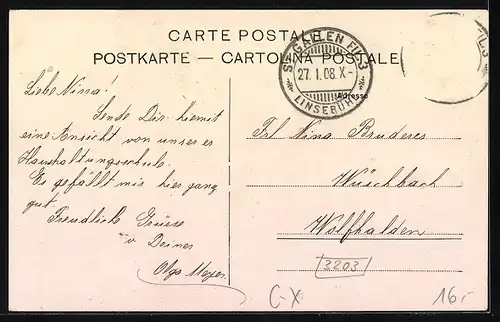 CARTE POSTALE.
POSTKARTE — CARTOLINA POSTALE
ST. GALLEN FIL. 3
27. I. 08. X-
LINSEBÜHL
FIL. 3
Adresse
Liebe Ninna!
Sende Dir hiemit
eine Ansicht von unserer
Haushaltungsschule.
Es gefällt mir hier ganz
gut.
Freudliche Grüsse
v Deiner
Olga Meyer
Frl Nina Bruderer
Wüschbach
Wolfhalden
3203
C-X
16.-